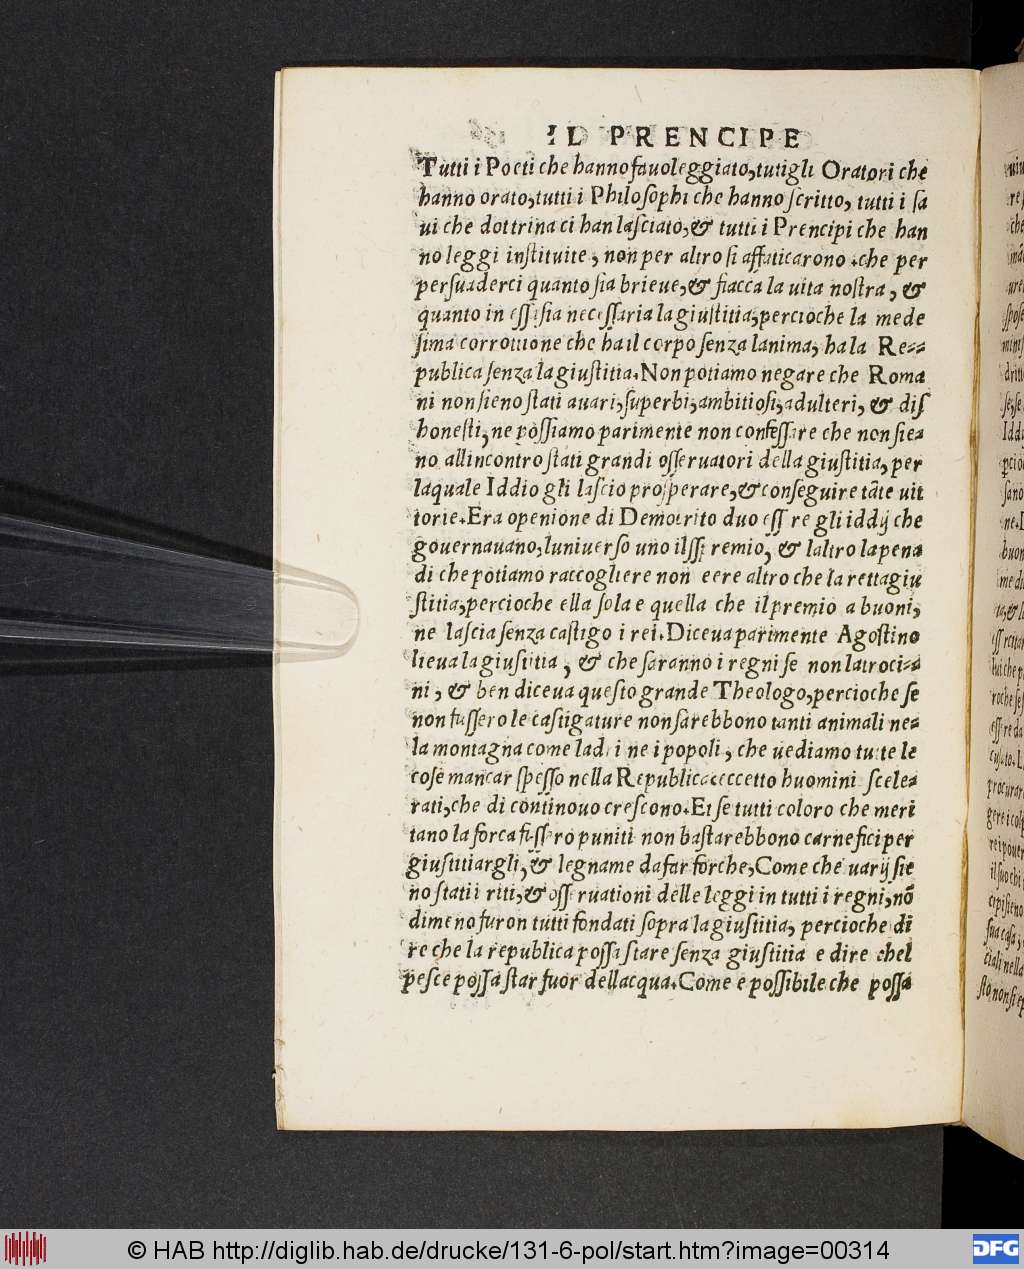 IL PRENCIPE
Tutti i Poeti che hanno fauoleggiato, tutigli Oratori che
hanno orato, tutti i Philosophi che hanno scritto, tutti i sa
ui che dottrina ci han lasciato, & tutti i Prencipi che han
no leggi instituite, non per altro si affaticarono che per
persuaderci quanto sia brieue, & fiacca la uita nostra, &
quanto in essa sia necessaria la giustitia, percioche la mede
sima corrottione che ha il corpo senza lanima, ha la Re=
publica senza la giustitia. Non potiamo negare che Roma
ni non sieno stati auari, superbi, ambitiosi, adulteri, & dis
honesti, ne possiamo parimente non confessare che non sie=
no allincontro stati grandi osseruatori della giustitia, per
laquale Iddio gli lascio prosperare, & conseguire tāte uit
torie. Era openione di Democrito duo ess re gli iddij che
gouernauano, luniuerso uno il premio, & laltro la pena
di che potiamo raccogliere non eere altro che la retta giu
stitia, percioche ella sola e quella che il premio a buoni,
ne lascia senza castigo i rei. Diceua parimente Agostino
lieua la giustitia, & che saranno i regni se non latroci=
ni, & ben diceua questo grande Theologo, percioche se
non fussero le castigature non sarebbono tanti animali ne=
la montagna come lad i ne i popoli, che uediamo tutte le
cose mancar spesso nella Republica eccetto huomini scele=
rati, che di continouo crescono. Et se tutti coloro che meri
tano la forca fussero puniti non bastarebbono carnefici per
giustitiargli, & legname da far forche, Come che uarij sie
no stati i riti, & osseruationi delle leggi in tutti i regni, nō
dimeno furon tutti fondati sopra la giustitia, percioche di
re che la republica possa stare senza giustitia e dire chel
pesce possa star fuor dellacqua. Come e possibile che possa
© HAB http://diglib.hab.de/drucke/131-6-pol/start.htm?image=00314
DFG